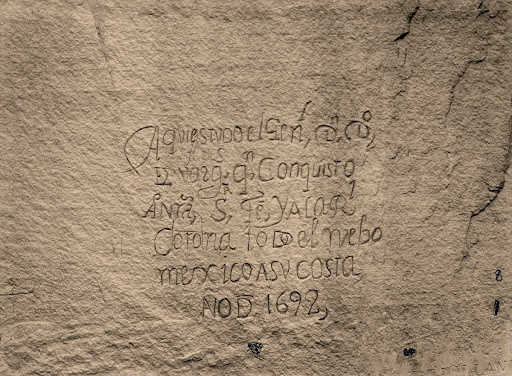 Aqui estuDO el GEn^l, D^n, D^o,
D Varg^s, q^n, Conquisto
A Nr^a, S^ta, Fe, Y A LA R^l
Corona toDO el nuebo
mexico A SV COSTA
AÑO D 1692,